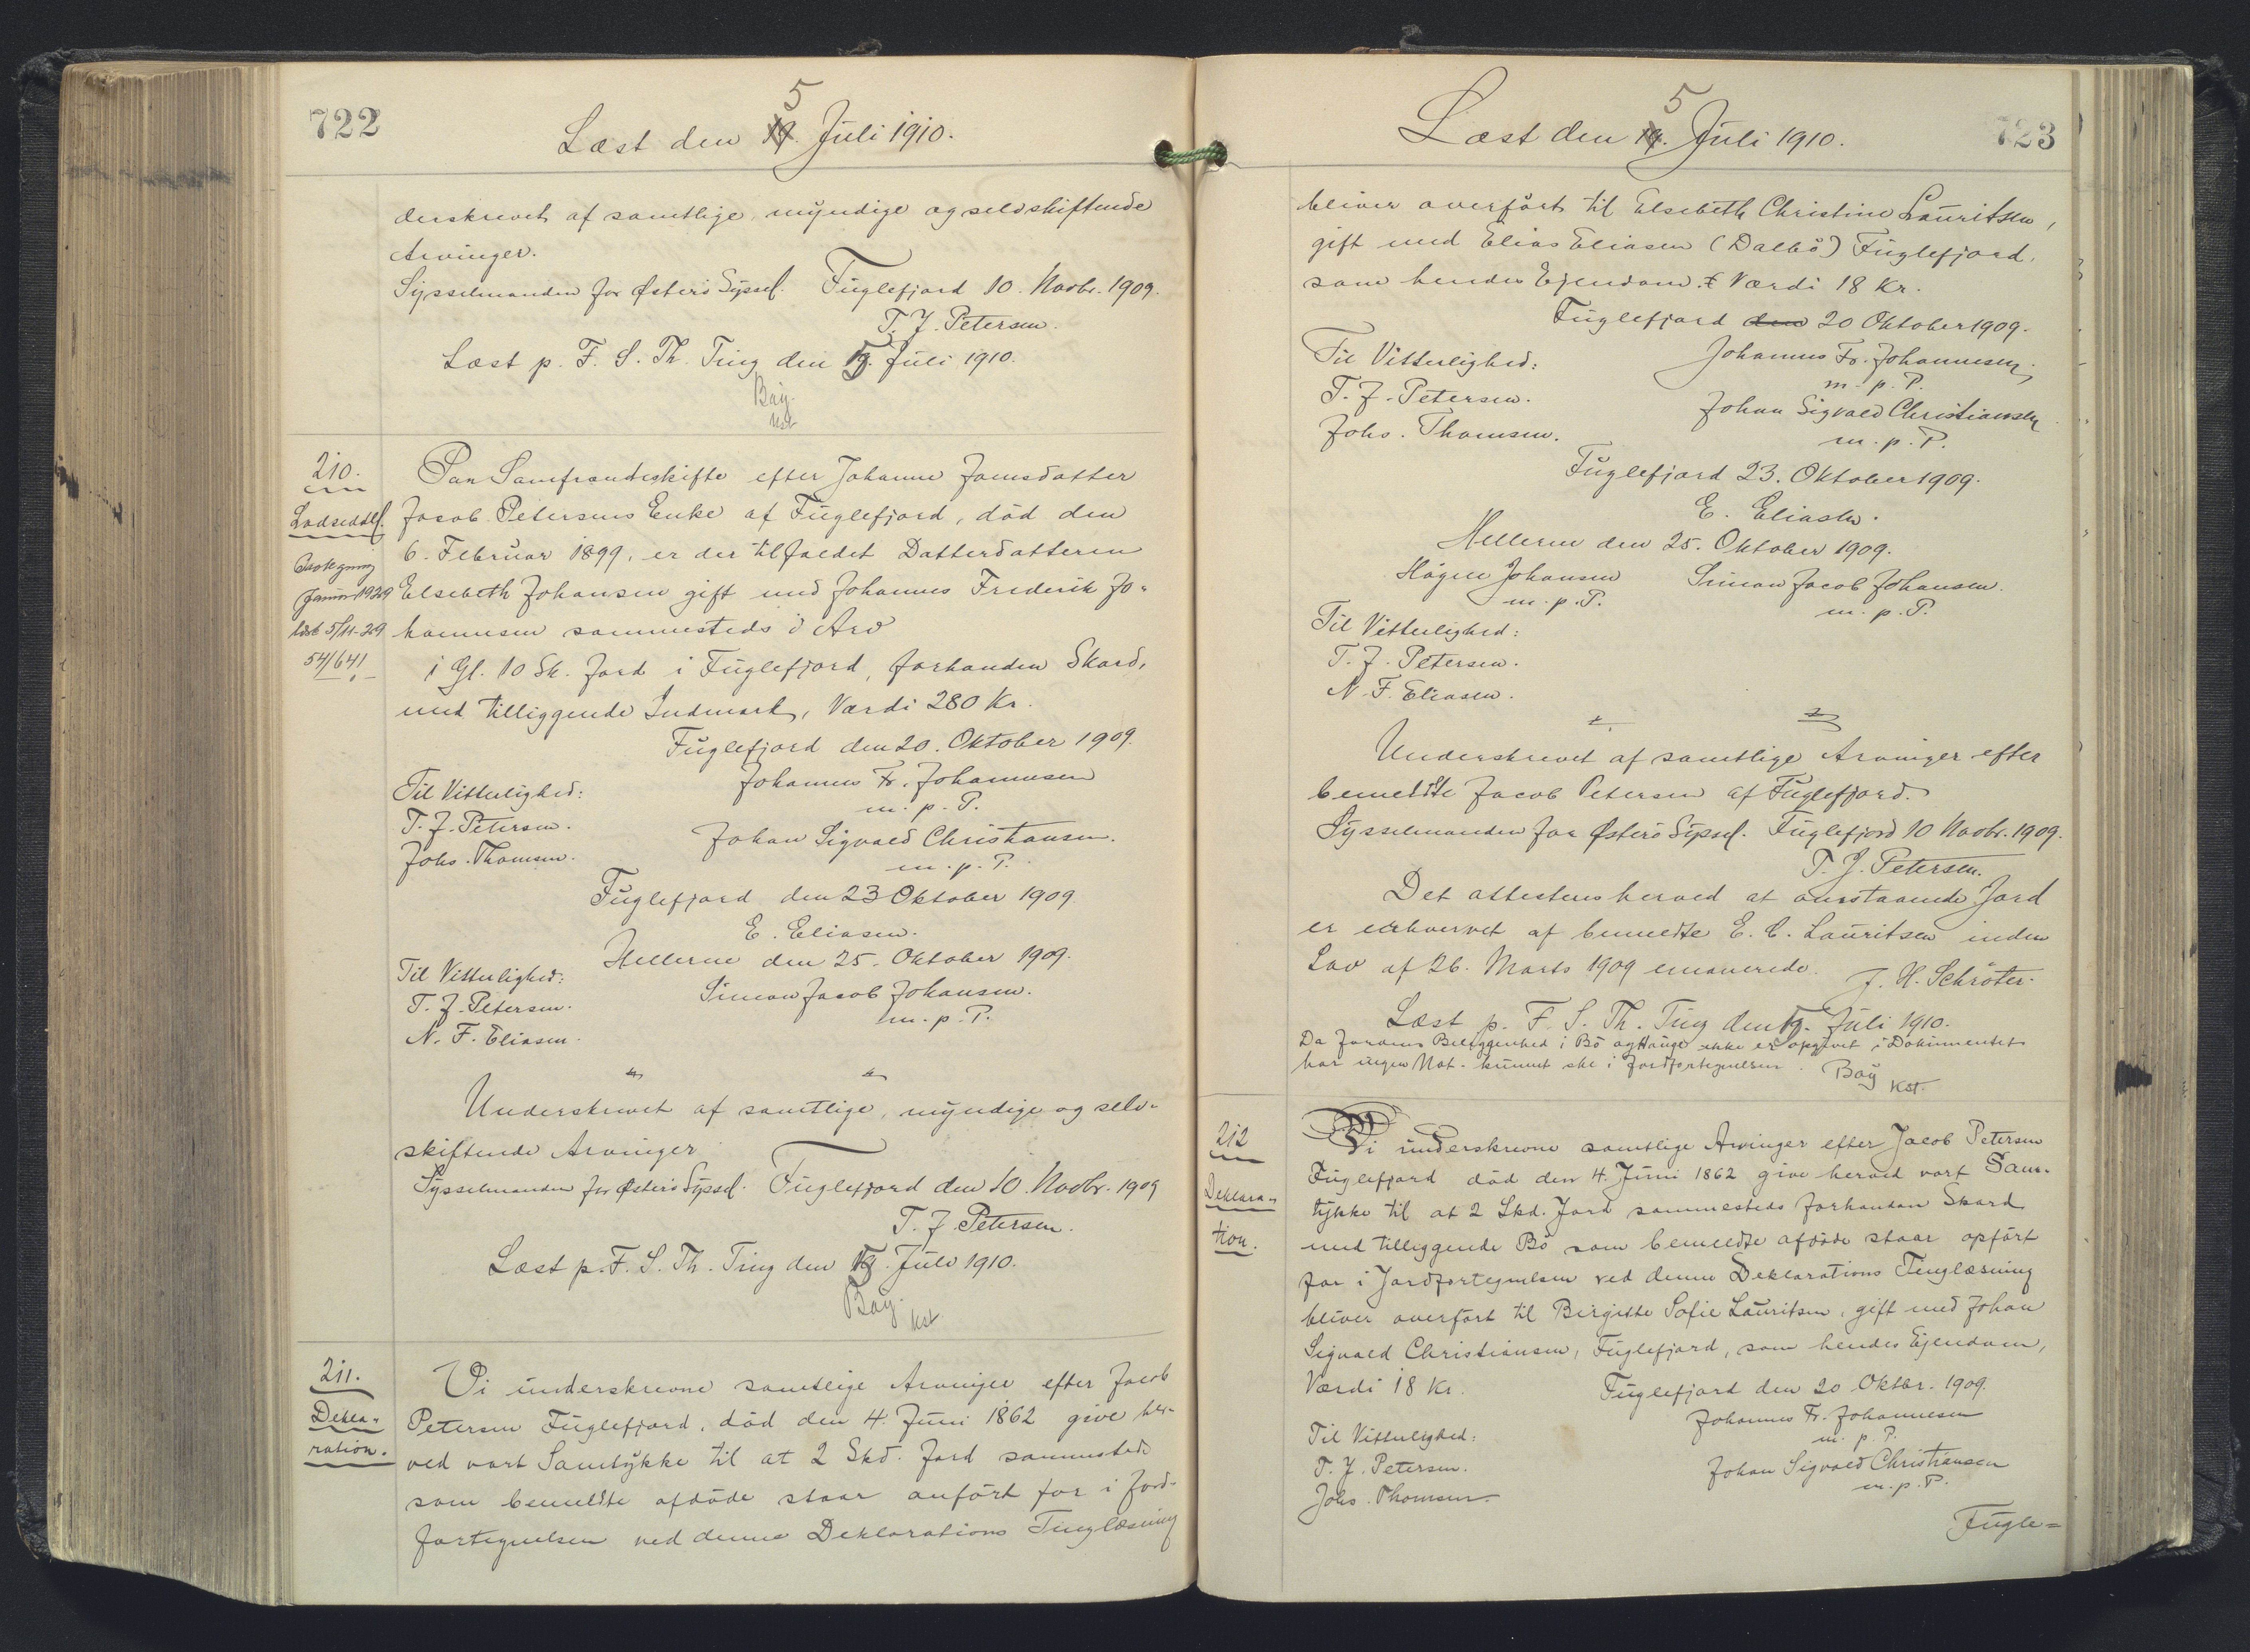 722
5
Læst den 19. Juli 1910.
derskrevet af samtlige myndige og selvskiftende
Arvinger.
Sysselmanden for Østerö Syssel. Fuglefjord 10. Novbr. 1909.
T. J. Petersen.
Læst p. F. S. Th. Ting den 5. Juli 1910.
Bay.
kst
210.
Lodseddel.
Paategning
Januar 1929
læst 5/11-29
54/641
Paa Samfrændeskifte efter Johanne Joensdatter
Jacob Petersens Enke af Fuglefjord, död den
6. Februar 1899, er der tilfaldet Datterdatteren
Elsebeth Johansen gift med Johannes Frederik Jo-
hannesen sammesteds i Arv
1 Gl. 10 Sk. Jord i Fuglefjord, forhanden Skard,
med tilliggende Indmark, Værdi 280 Kr.
Fuglefjord den 20. Oktober 1909.
Til Vitterlighed:
Johannes Fr. Johannesen
m. p. P.
T. J. Petersen.
Johs. Thomsen.
Johan Sigvald Christiansen.
m. p. P.
Fuglefjord den 23 Oktober 1909
E. Eliasen.
Hellerne den 25. Oktober 1909.
Til Vitterlighed:
Simon Jacob Johansen.
m. p. P.
T. J. Petersen.
N. F. Eliasen.
Underskrevet af samtlige, myndige og selv-
skiftende Arvinger
Sysselmanden for Østerö Syssel. Fuglefjord den 10. Novbr. 1909
T. J. Petersen.
Læst p. F. S. Th. Ting den 5. Juli 1910.
Bay.
kst
211.
Dekla-
ration.
Vi underskrevne samtlige Arvinger efter Jacob
Petersen Fuglefjord, död den 4. Juni 1862 give her-
ved vort Samtykke til at 2 Skd. Jord sammesteds
som bemeldte afdöde staar anfört for i Jord-
fortegnelsen ved denne Deklarations Tinglæsning
723
5
Læst den 19. Juli 1910.
bliver overfört til Elsebeth Christine Lauritsen,
gift med Elias Eliasen (Dalbö) Fuglefjord,
som hendes Ejendom. Værdi 18 Kr.
Fuglefjord den 20 Oktober 1909.
Til Vitterlighed:
Johannes Fr. Johannesen
m. p. P.
T. J. Petersen.
Johs. Thomsen.
Johan Sigvald Christiansen
m. p. P.
Fuglefjord 23. Oktober 1909.
E. Eliasen.
Hellerne den 25. Oktober 1909.
Högni Johansen
m. p. P.
Simon Jacob Johansen.
m. p. P.
Til Vitterlighed:
T. J. Petersen.
N. F. Eliasen.
Underskrevet af samtlige Arvinger efter
bemeldte Jacob Petersen af Fuglefjord.
Sysselmanden for Österö Syssel. Fuglefjord 10 Novbr. 1909.
T. J. Petersen.
Det attesteres herved at ovenstaaende Jord
er erhvervet af bemeldte E. C. Lauritsen inden
Lov af 26. Marts 1909 emanerede. J. H. Schröter.
Læst p. F. S. Th. Ting den 5. Juli 1910.
Da Jordens Beliggenhed i Bö og Hauge ikke er opgivet i Dokumentet
har ingen Not. kunnet ske i Jordfortegnelsen. Bay
kst.
212
Deklara-
tion.
Vi underskrevne samtlige Arvinger efter Jacob Petersen
Fuglefjord död den 4. Juni 1862 give herved vort Sam-
tykke til at 2 Skd. Jord sammesteds forhanden Skard
med tilliggende Bö som bemeldte afdöde staar opfört
for i Jordfortegnelsen ved denne Deklarations Tinglæsning
bliver overfört til Birgitte Sofie Lauritsen, gift med Johan
Sigvald Christiansen, Fuglefjord, som hendes Ejendom,
Værdi 18 Kr.
Fuglefjord den 20 Oktbr. 1909.
Til Vitterlighed:
Johannes Fr. Johannesen
m. p. P.
T. J. Petersen.
Johs. Thomsen.
Johan Sigvald Christiansen
m. p. P.
Fugle=